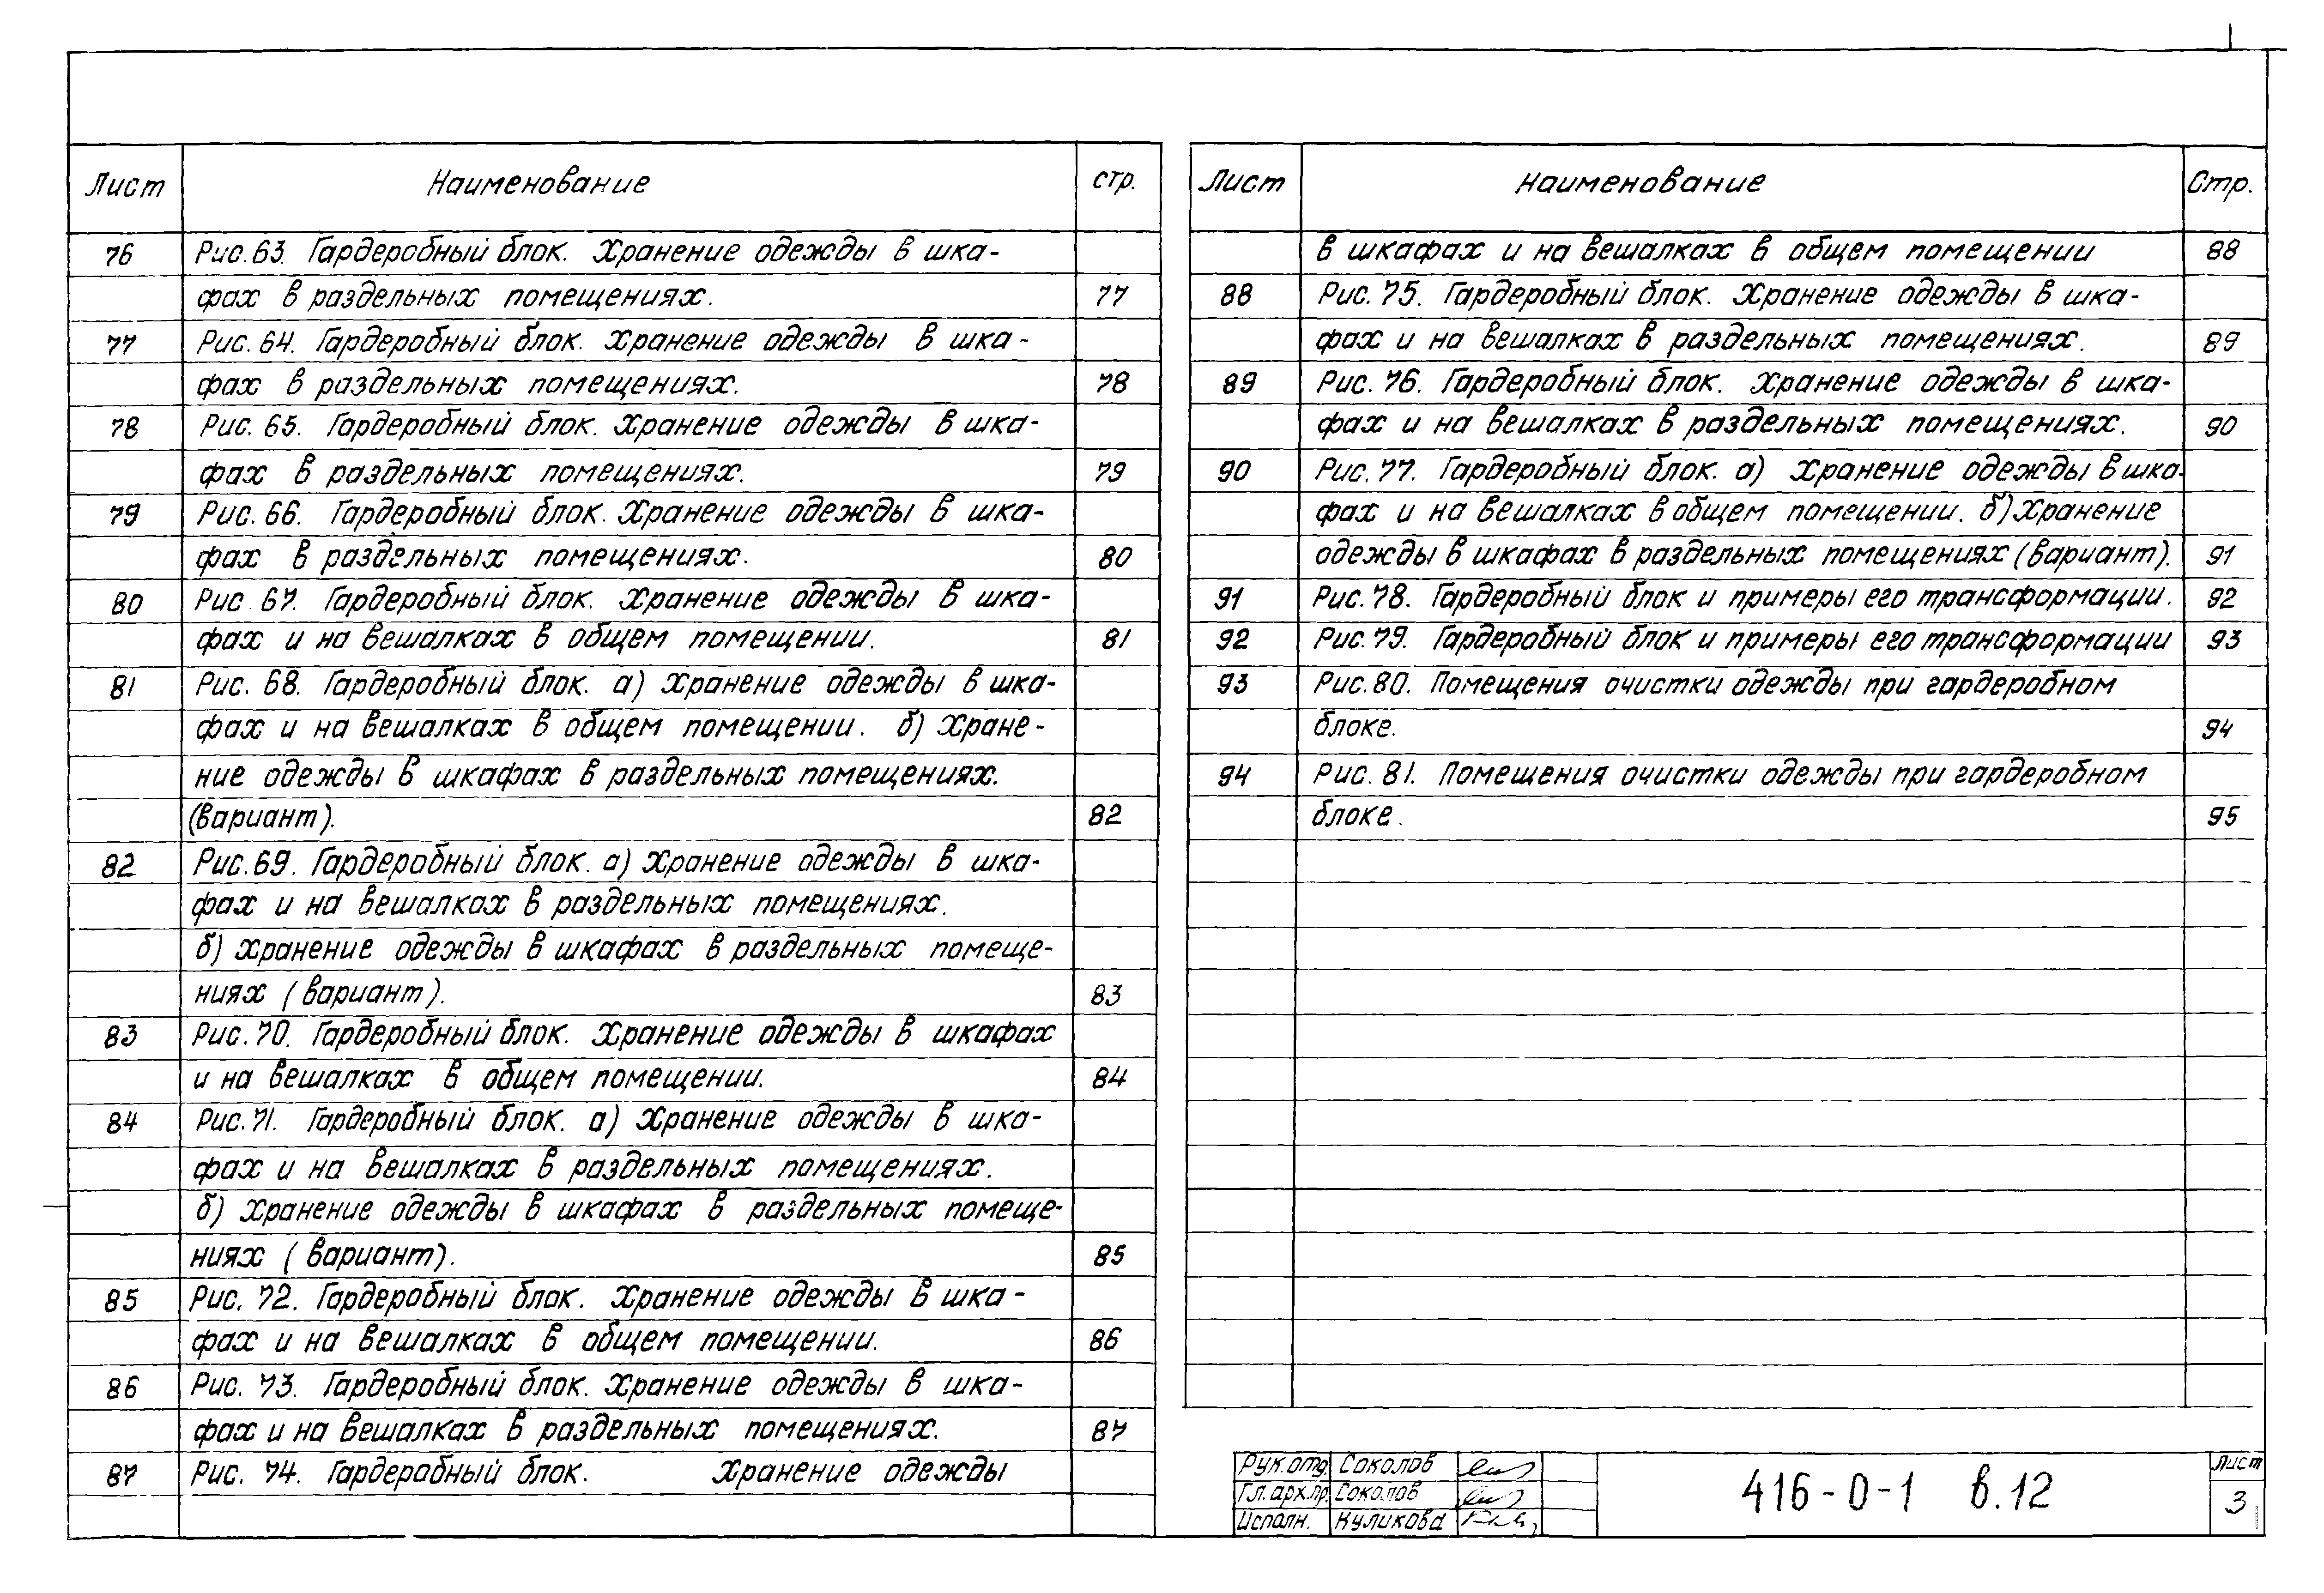 Лист Наименование стр.
76 Рис. 63. Гардеробный блок. Хранение одежды в шка-
фах в раздельных помещениях. 77
77 Рис. 64. Гардеробный блок. Хранение одежды в шка-
фах в раздельных помещениях. 78
78 Рис. 65. Гардеробный блок. Хранение одежды в шка-
фах в раздельных помещениях. 79
79 Рис. 66. Гардеробный блок. Хранение одежды в шка-
фах в раздельных помещениях. 80
80 Рис. 67. Гардеробный блок. Хранение одежды в шка-
фах и на вешалках в общем помещении. 81
81 Рис. 68. Гардеробный блок. а) Хранение одежды в шка-
фах и на вешалках в общем помещении. б) Хране-
ние одежды в шкафах в раздельных помещениях.
(вариант). 82
82 Рис. 69. Гардеробный блок. а) Хранение одежды в шка-
фах и на вешалках в раздельных помещениях.
б) Хранение одежды в шкафах в раздельных помеще-
ниях (вариант). 83
83 Рис. 70. Гардеробный блок. Хранение одежды в шкафах
и на вешалках в общем помещении. 84
84 Рис. 71. Гардеробный блок. а) Хранение одежды в шка-
фах и на вешалках в раздельных помещениях.
б) Хранение одежды в шкафах в раздельных помеще-
ниях (вариант). 85
85 Рис. 72. Гардеробный блок. Хранение одежды в шка-
фах и на вешалках в общем помещении. 86
86 Рис. 73. Гардеробный блок. Хранение одежды в шка-
фах и на вешалках в раздельных помещениях. 87
87 Рис. 74. Гардеробный блок. Хранение одежды
Лист Наименование Стр.
в шкафах и на вешалках в общем помещении 88
88 Рис. 75. Гардеробный блок. Хранение одежды в шка-
фах и на вешалках в раздельных помещениях. 89
89 Рис. 76. Гардеробный блок. Хранение одежды в шка-
фах и на вешалках в раздельных помещениях. 90
90 Рис. 77. Гардеробный блок. а) Хранение одежды в шка-
фах и на вешалках в общем помещении. б) Хранение
одежды в шкафах в раздельных помещениях (вариант). 91
91 Рис. 78. Гардеробный блок и примеры его трансформации. 92
92 Рис. 79. Гардеробный блок и примеры его трансформации 93
93 Рис. 80. Помещения очистки одежды при гардеробном
блоке. 94
94 Рис. 81. Помешения очистки одежды при гардеробном
блоке. 95
Рук. отд. Соколов
Гл. арх. пр. Соколов
Исполн. Куликова
416-0-1 в.12
Лист
3